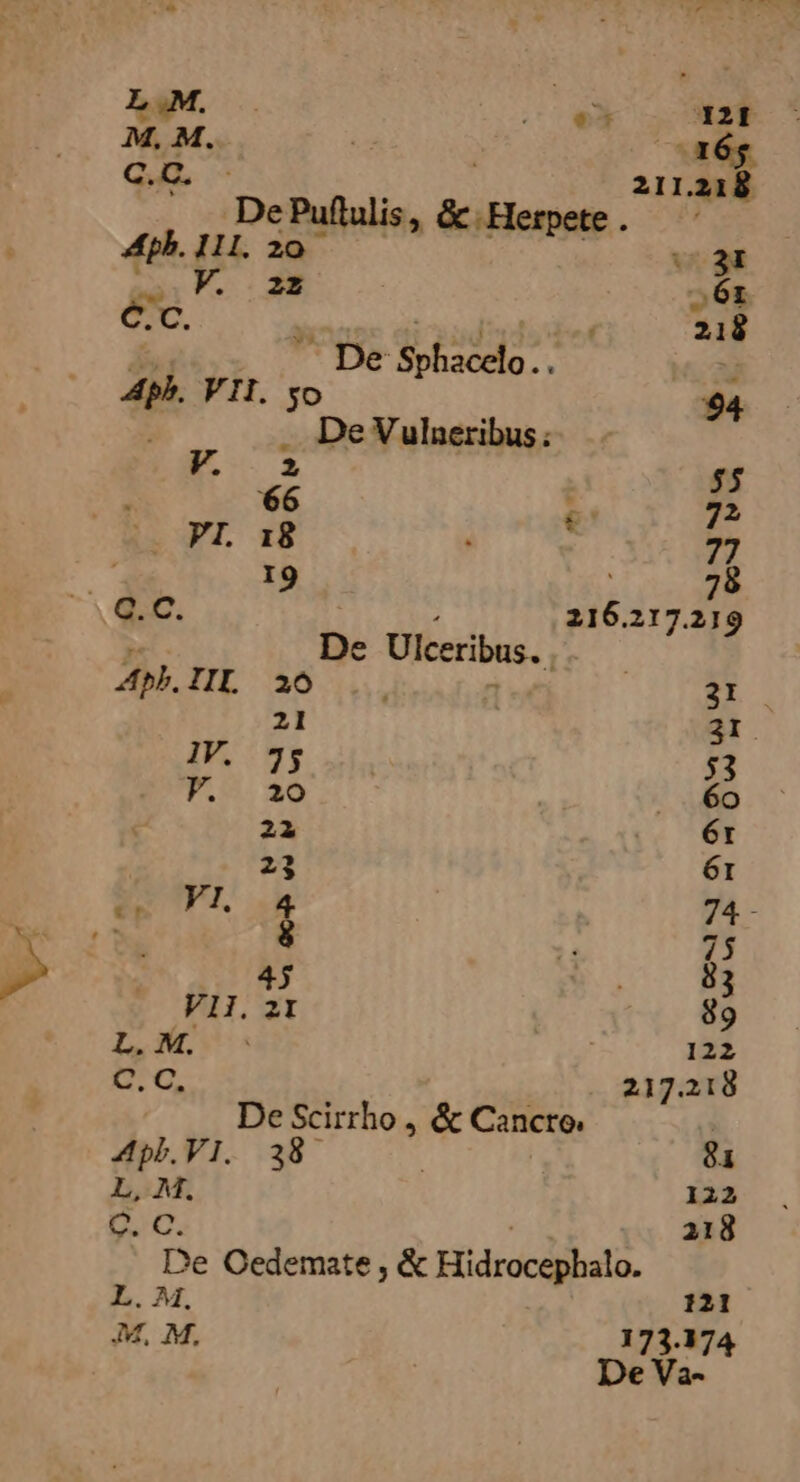 L. M. 121
M. M. 165
C. C. 211.218
De Puſtulis, & Herpete.
Aph. III. 20 31
V. 22 61
C. C. 218
De Sphacelo.
Aph. VII. 50 94
De Vulneribus.
V. 2 55
66 72
VI. 18 77
19 78
C. C. 216.217.219
De Ulceribus.
Aph. III. 20 31
21 31
IV. 75 53
V. 20 60
22 61
23 61
VI. 4 74
8 75
45 83
VII. 21 89
L. M. 122
C. C. 217.218
De Scirrho, & Cancro.
Aph. VI. 38 81
L. M. 122
C. C. 218
De Oedemate, & Hidrocephalo.
L. M. 121
M. M. 173.174
De Va-